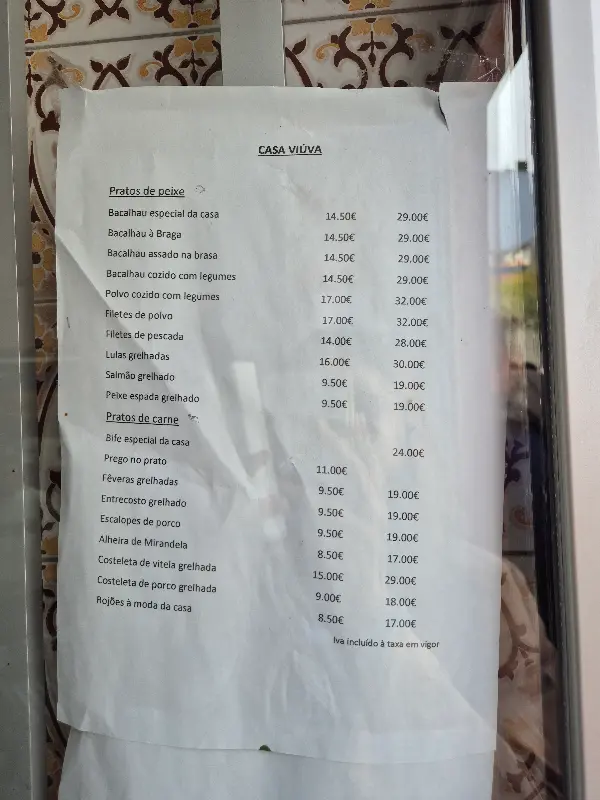 CASA VIÚVA
Pratos de peixe
Bacalhau especial da casa 14.50€ 29.00€
Bacalhau à Braga 14.50€ 29.00€
Bacalhau assado na brasa 14.50€ 29.00€
Bacalhau cozido com legumes 14.50€ 29.00€
Polvo cozido com legumes 17.00€ 32.00€
Filetes de polvo 17.00€ 32.00€
Filetes de pescada 14.00€ 28.00€
Lulas grelhadas 16.00€ 30.00€
Salmão grelhado 9.50€ 19.00€
Peixe espada grelhado 9.50€ 19.00€
Pratos de carne
Bife especial da casa 24.00€
Prego no prato 11.00€
Fêveras grelhadas 9.50€ 19.00€
Entrecosto grelhado 9.50€ 19.00€
Escalopes de porco 9.50€ 19.00€
Alheira de Mirandela 8.50€ 17.00€
Costeleta de vitela grelhada 15.00€ 29.00€
Costeleta de porco grelhada 9.00€ 18.00€
Rojões à moda da casa 8.50€ 17.00€
Iva incluído à taxa em vigor